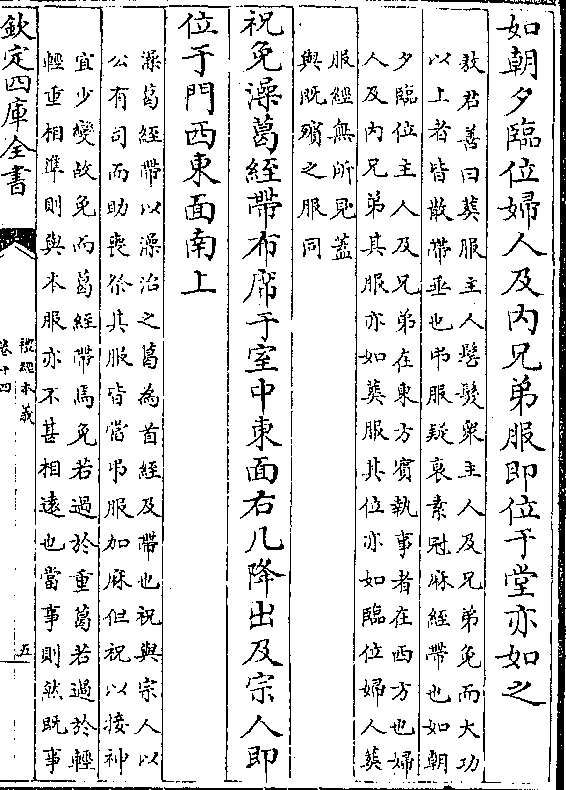 如朝夕臨位婦人及内兄弟服即位于堂亦如之
敖君善曰葬服主人髺髮衆主人及兄弟免而大功
以上者皆散帶垂也弔服疑衰素冠麻絰帶也如朝
夕臨位主人及兄弟在東方賓執事者在西方也婦
人及内兄弟其服亦如葬服其位亦如臨位婦人葬
服絰無所見蓋
與既殯之服同
祝免澡葛絰帶布席于室中東面右几降出及宗人即
位于門西東面南上
澡葛絰帶以澡治之葛為首絰及帶也祝與宗人以
公有司而助喪祭其服皆當弔服加麻但祝以接神
宜少變故免而葛絰帶焉免若過於重葛若過於輕
輕重相準則與本服亦不甚相遠也當事則然既事
欽定四庫全書
禮經本義
卷十四
五